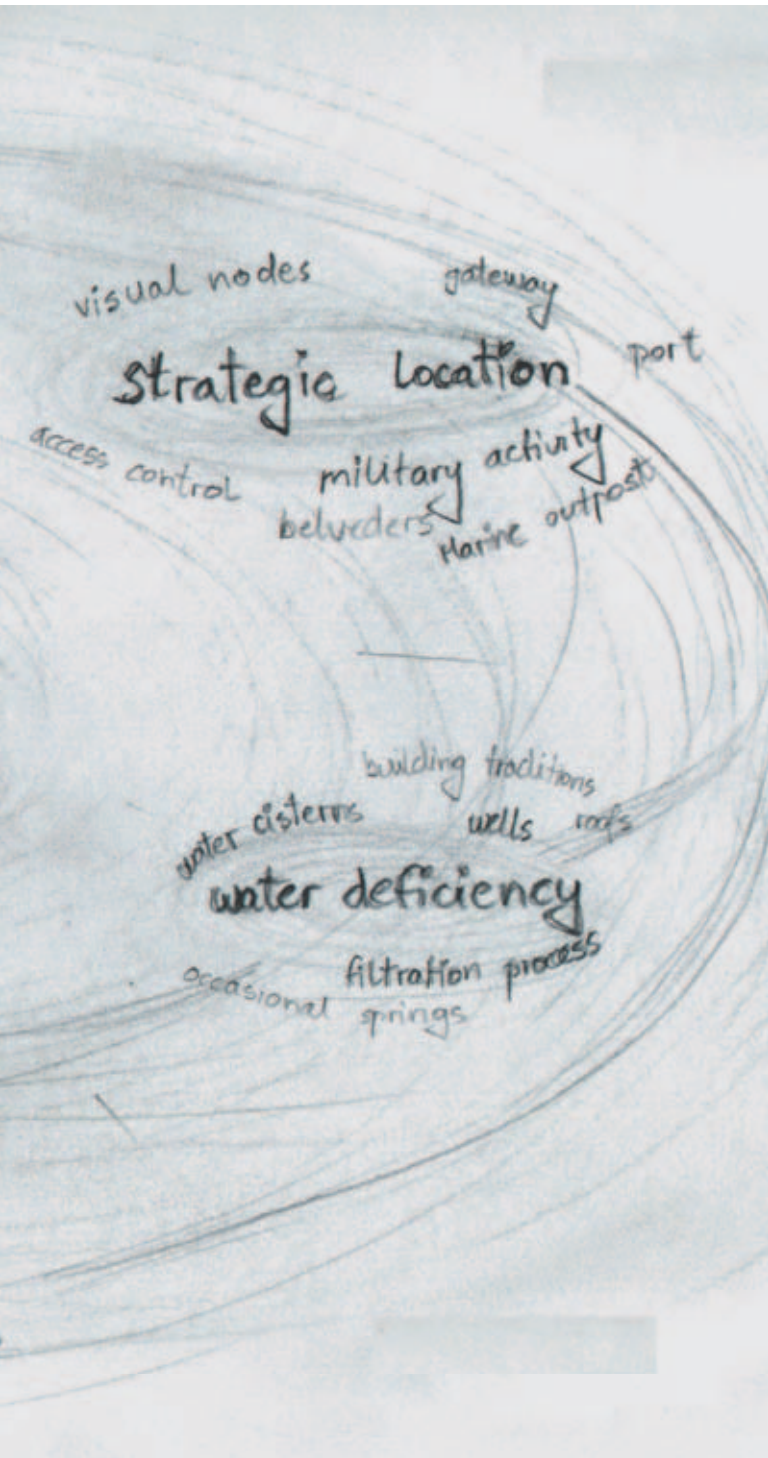 visual nodes
gateway
port
Strategic Location
access control
military activity
belveders
Marine outpost
building traditions
water cisterns
wells
roofs
water deficiency
filtration process
occasional springs